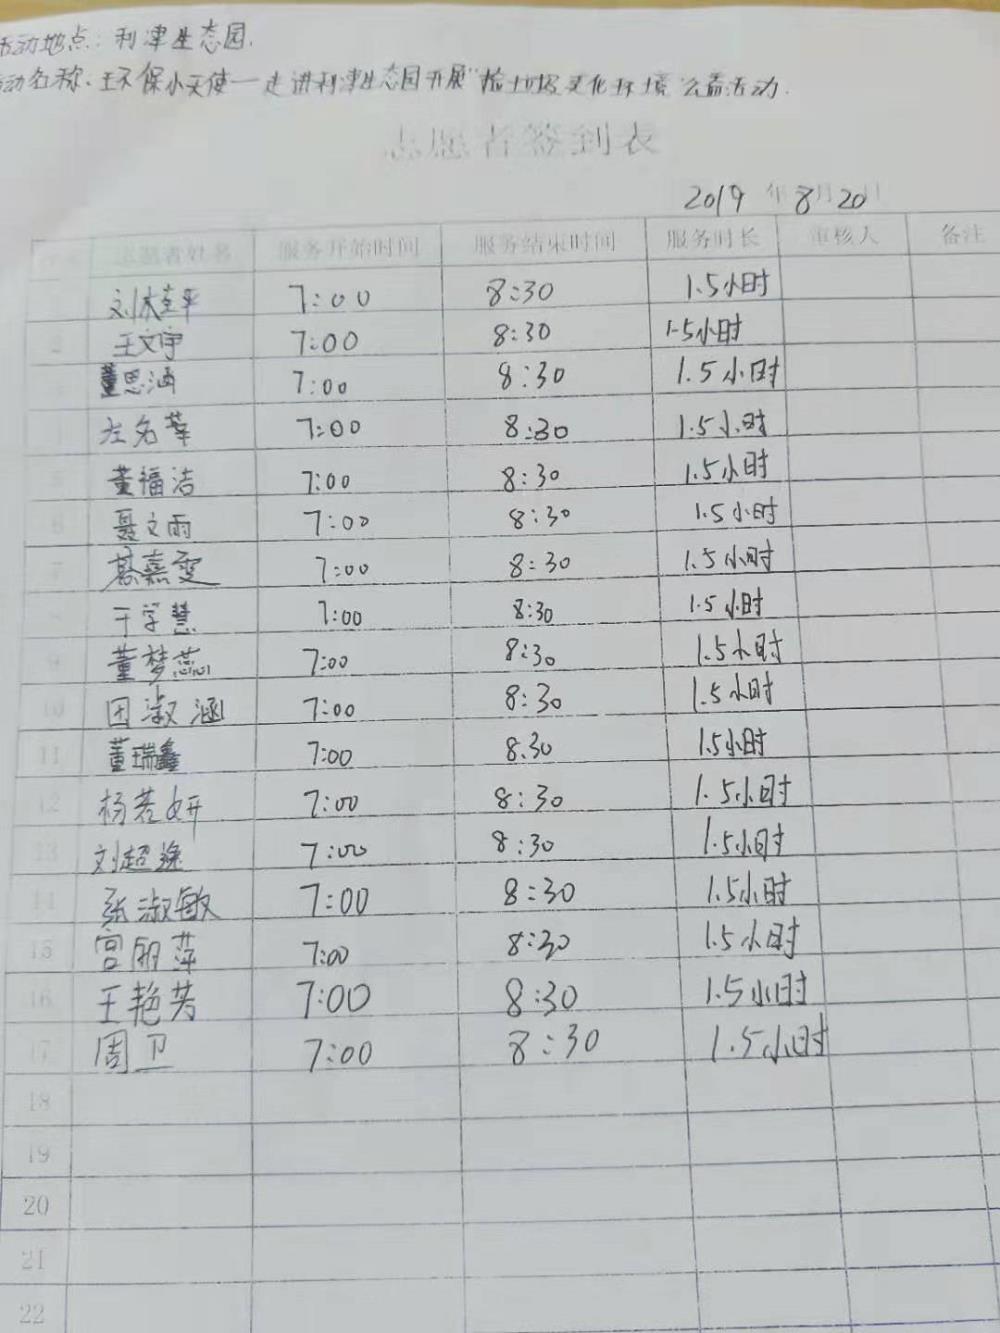 活动地点：利津生态园.
动名称、环保小天使一走进利津生态园开展"捡垃圾美化环境"公益活动.
志愿者签到表
2019 年 8月20日
志愿者姓名 服务开始时间 服务结束时间 服务时长 审核人 备注
7:00 8:30 1.5小时
2 王文宇 7:00 8:30 1.5小时
董思涵 7:00 8:30 1.5小时
左名莘 7:00 8:30 1.5小时
5 董福洁 7:00 8:30 1.5小时
6 聂文雨 7:00 8:30 1.5小时
7 綦嘉雯 7:00 8:30 1.5小时
于学慧 7:00 8:30 1.5小时
9 董梦蕊 7:00 8:30 1.5小时
10 田淑涵 7:00 8:30 1.5小时
11 董瑞鑫 7:00 8.30 1.5小时
12 杨若妍 7:00 8:30 1.5小时
13 刘超逸 7:00 8:30 1.5小时
14 张淑敏 7:00 8:30 1.5小时
15 宫丽萍 7:00 8:30 1.5小时
16 王艳芳 7:00 8:30 1.5小时
17 周卫 7:00 8:30 1.5小时
18
19
20
21
22